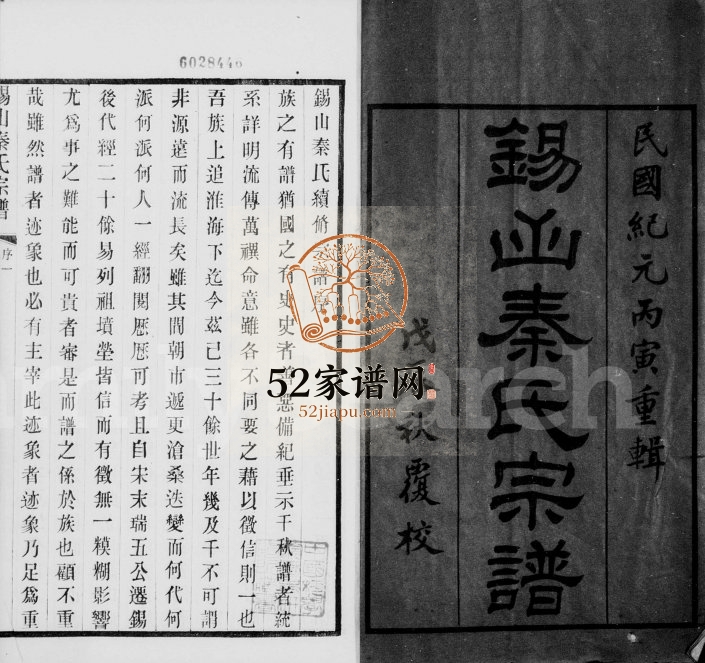 民國紀元丙寅重輯
錫山秦氏宗譜
戊秋覆校
6028446
錫山秦氏續修譜
族之有譜猶國之有史史者惡備紀垂示千秋譜者統
系詳明流傳萬禩命意雖各不同要之藉以徵信則一也
吾族上追淮海下迄今茲已三十餘世年幾及千不可謂
非源遠而流長矣雖其間朝市遞更滄桑迭變而何代何
派何派何人一經翻閱歷歷可考且自宋末瑞五公遷錫
後代經二十餘易列祖墳塋皆信而有徵無一糢糊影響
尤爲事之難能而可貴者審是而譜之係於族也顧不重
哉雖然譜者迹象也必有主宰此迹象者迹象乃足爲重
錫山秦氏宗譜
序
一
52家谱网
52jiapu.com